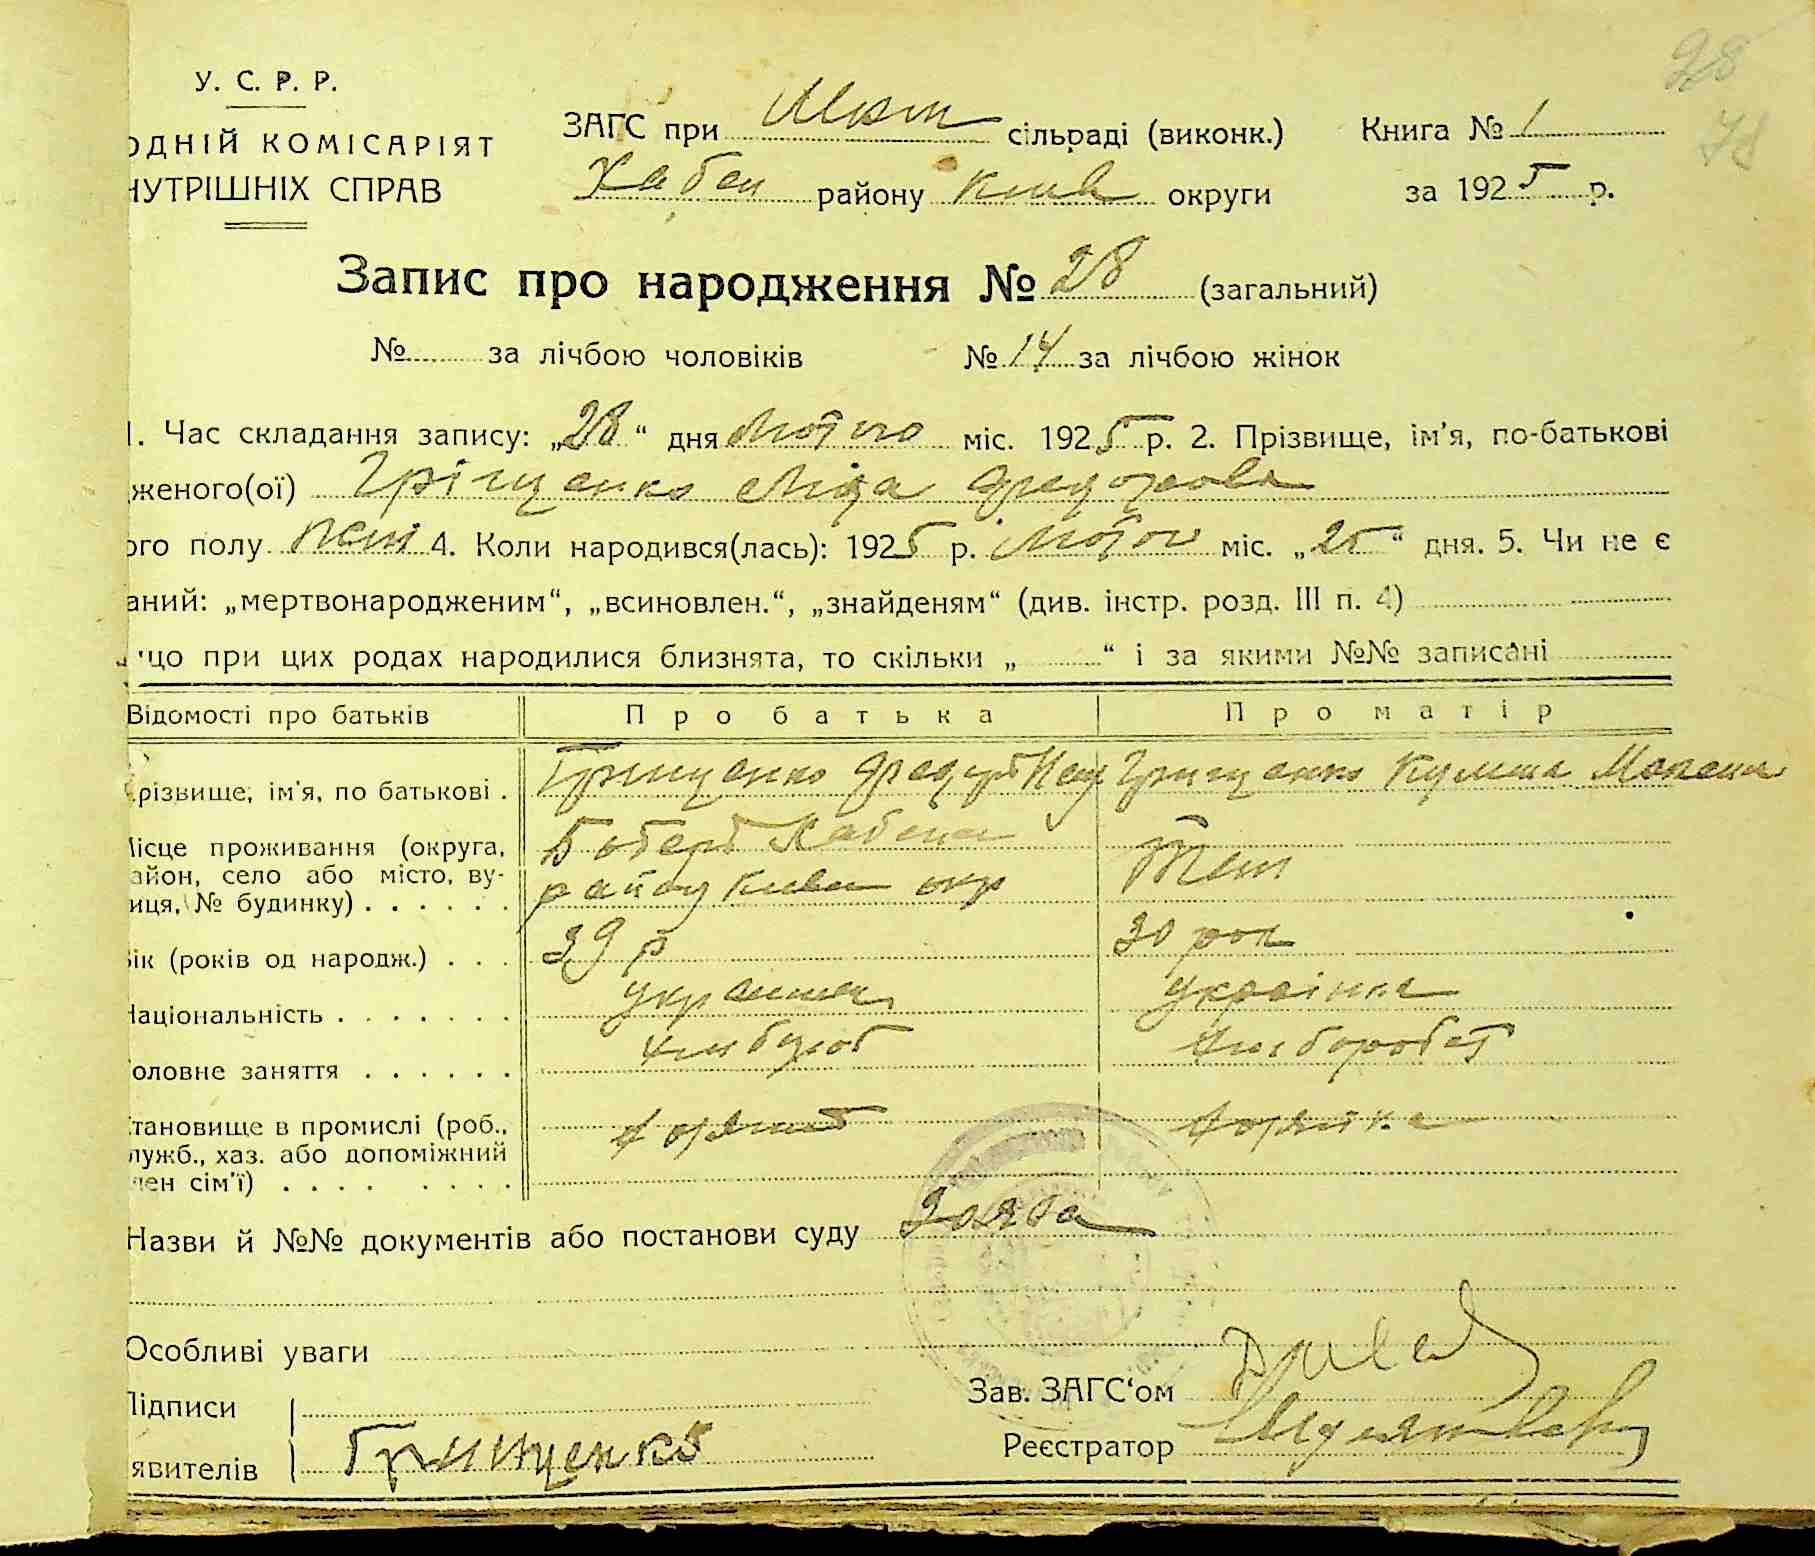 28
78
У. С. Р. Р.
ОДНІЙ КОМІСАРІЯТ
НУТРІШНІХ СПРАВ
ЗАГС при сільраді (виконк.) Книга № 1
Хабен району Київ округи за 1925 р.
Запис про народження № 28 (загальний)
№ за лічбою чоловіків № 14 за лічбою жінок
1. Час складання запису: „28“ дня Лютого міс. 1925 р. 2. Прізвище, ім'я, по-батькові
женого(ої) Гріщенко Ліда Федорова
ого полу жін 4. Коли народився(лась): 1925 р. Лютого міс. „25“ дня. 5. Чи не є
аний: „мертвонародженим“, „всиновлен.“, „знайденям“ (див. інстр. розд. III п. 4)
що при цих родах народилися близнята, то скільки „ “ і за якими №№ записані
Відомості про батьків Про батька Про матір
різвище, ім'я, по батькові . Грищенко Федур Грищенко
ісце проживання (округа, район, село або місто, ву-
иця, № будинку) . . . . . . району Київ окр Теж
ік (років од народж.) . . . 39 р 30 рок
аціональність . . . . . . . українец українка
оловне заняття . . . . . . хлібороб хлібороб
тановище в промислі (роб.,
лужб., хаз. або допоміжний
лен сім'ї) . . . . . . . .
Назви й №№ документів або постанови суду Заява
Особливі уваги
Підписи Зав. ЗАГС'ом
явителів Грищенко Реєстратор